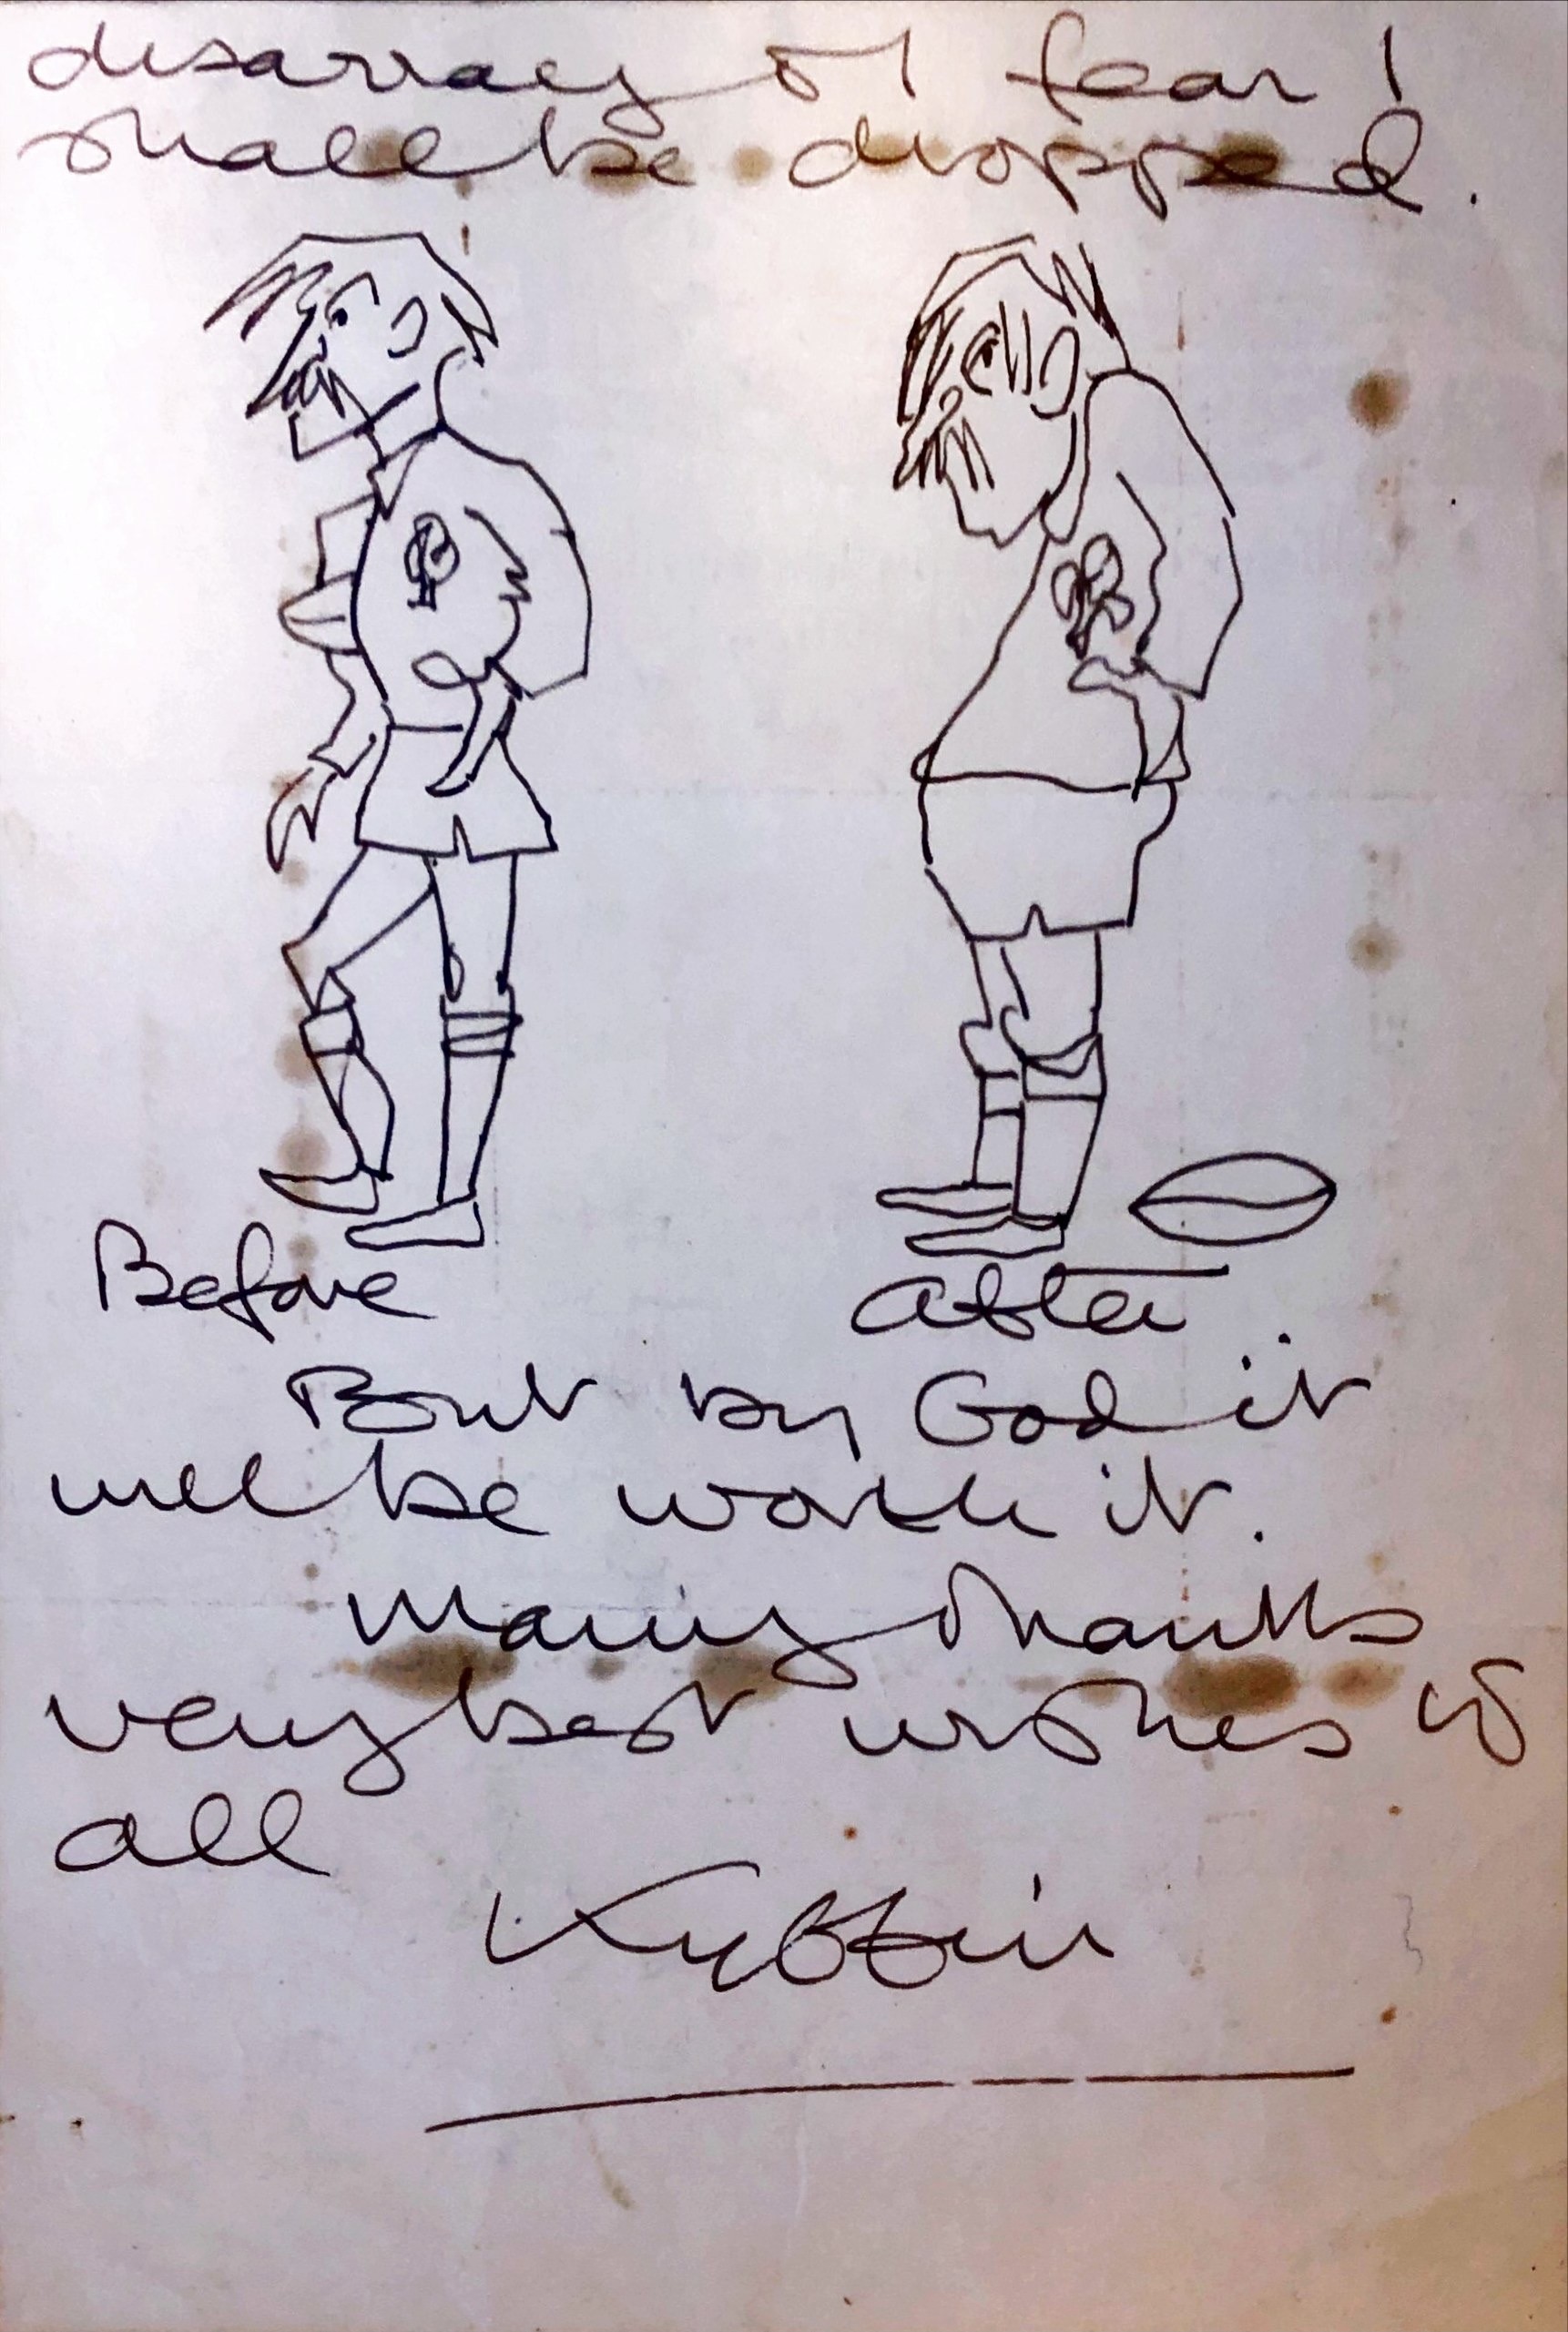 disarray & I fear I
shall be dropped.
Before
After.
But by God it
will be worth it.
Many thanks
very best wishes to
all
Kyffin